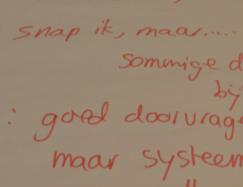 snap ik, maar.....
sommige d
bij
: goed doorvrag
maar systeem